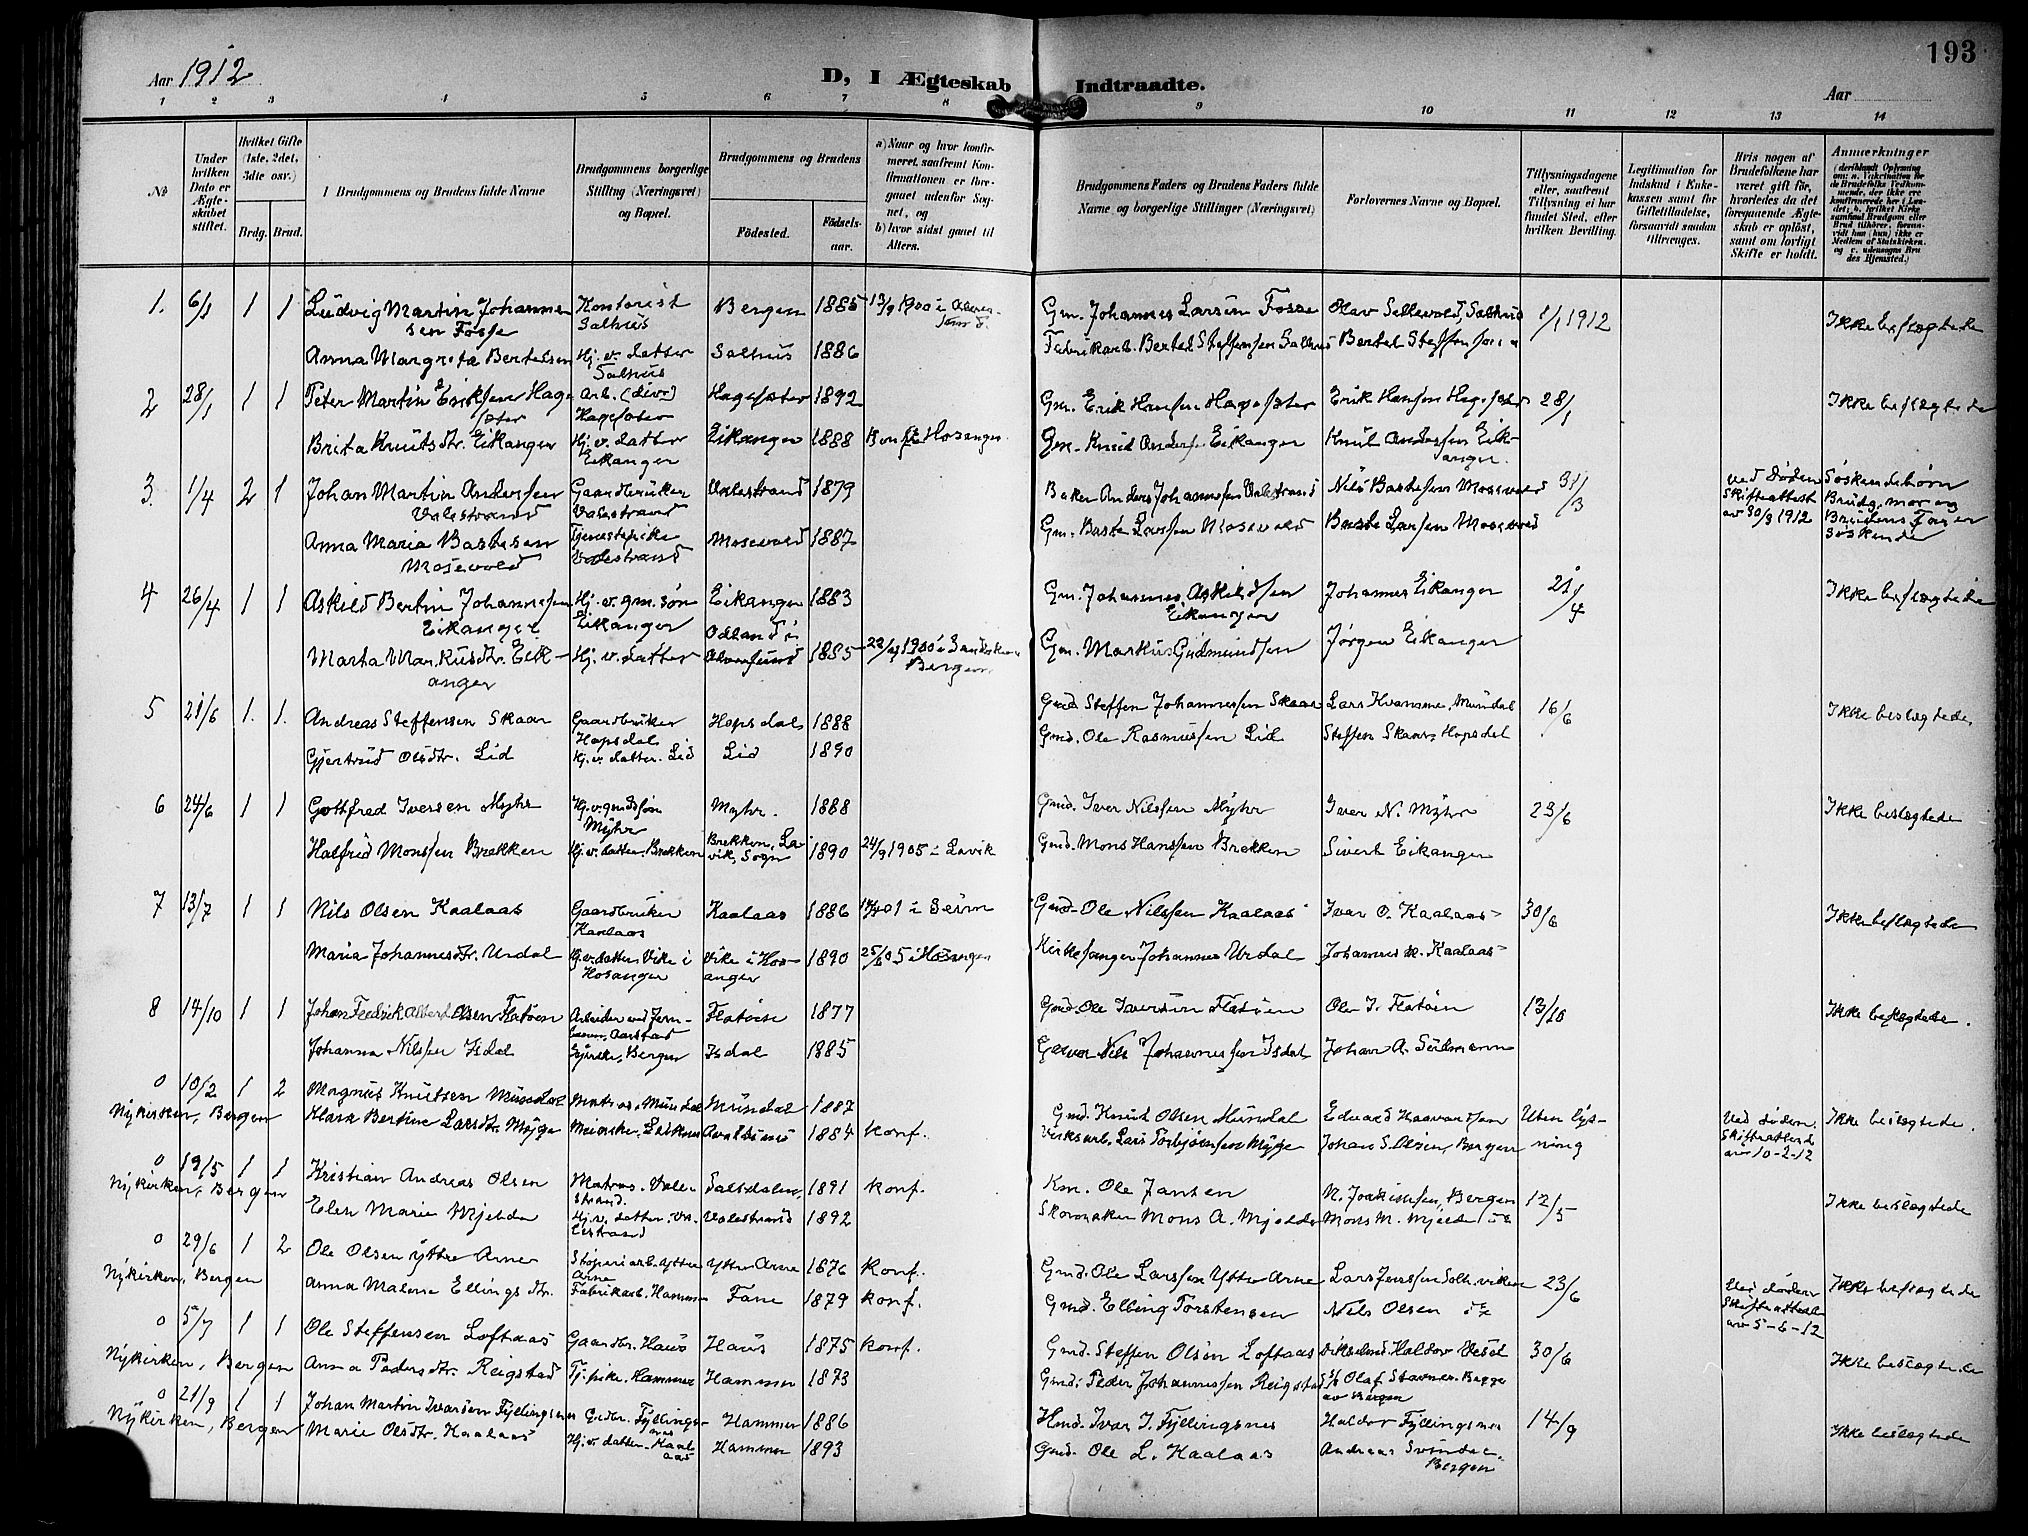 193
Aar 1912
D, I Ægteskab Indtraadte.
Aar
1 2 3 4 5 6 7 8 9 10 11 12 13 14
No
Under hvilken Dato er Ægteskabet stiftet.
Hvilket Gifte (1ste, 2det, 3die osv.)
Brdg. Brud.
I Brudgommens og Brudens fulde Navne
Brudgommens borgerlige Stilling (Næringsvei) og Bopæl.
Brudgommens og Brudens
Fødested. Fødselsaar.
a) Naar og hvor konfirmeret, saafremt Konfirmationen er foregaaet udenfor Sognet, og
b) hvor sidst gaaet til Alters.
Brudgommens Faders og Brudens Faders fulde Navne og borgerlige Stillinger (Næringsvei)
Forlovernes Navne og Bopæl.
Tillysningsdagene eller, saafremt Tillysning ei har fundet Sted, efter hvilken Bevilling.
Legitimation for Indskud i Enkekassen samt for Giftetilladelse, forsaavidt saadan tiltrænges.
Hvis nogen af Brudefolkene har været gift før, hvorledes da det foregaaende Ægteskab er opløst, samt om lovligt Skifte er holdt.
Anmærkninger
1. 6/1 1 1 Ludvig Martin Johannessen Fosse Kontorist Salhus Bergen 1885 13/9 1900 i Alversund. Gm. Johannes Larsen Fosse Olav Sellevold, Salhus 1/1 1912 Ikke beslægtede
Anna Margrete Bertelsen Hj. v. datter Salhus Salhus 1886 Fabrikarb. Bertel Steffensen Salhus Bertel Steffensen
2 28/1 1 1 Peter Martin Eriksen Hagesæter Arb. (div) Hagesæter Hagesæter 1892 Gm. Erik Hansen Hagesæter Erik Hansen Hagesæter 28/1 Ikke beslægtede
Brita Knutsdtr. Eikanger Hj. v. datter Eikanger Eikanger 1888 Konf. Hosanger. Gm. Knud Andersen Eikanger Knut Andersen Eikanger.
3. 1/4 2 1 Johan Martin Andersen Valestrand Gaardbruker Valestrand Valestrand 1879 Baker Anders Johannessen Valestrand Nils Bastesen Mosevold 31/3 ved døden Skifteattest av 30/3 1912 Søskendebørn Brudg. mor og Brudens Far er Søskende
Anna Maria Bastesen Mosevold Tjenestepike Valestrand Mosevold 1887 Gm. Baste Larsen Mosevold Baste Larsen Mosevold
4 26/4 1 1 Askild Bertin Johannessen Eikanger Hj. v. gm. søn Eikanger Eikanger 1883 Gm. Johannes Askildsen Eikanger Johannes Eikanger 21/4 Ikke beslægtede
Marta Markusdtr. Eikanger Hj. v. datter Odland i Alversund 1885 1900 i Bergen Gm. Markus Gudmundsen Jørgen Eikanger
5 21/6 1. 1. Andreas Steffensen Skaar Gaardbruker Hopsdal Hopsdal 1888 Gmd Steffen Johannessen Skaar Lars Kvamme, Mundal 16/6 Ikke beslægtede
Gjertrud Olsdtr. Lid Hj. v. datter. Lid Lid 1890 Gmd. Ole Rasmussen Lid Steffen Skaar, Hopsdal
6 24/6 1 1 Gottfred Iversen Myhr Hj. v. gmds søn Myhr Myhr. 1888 Gmd. Iver Nilssen Myhr Iver N. Myhr 23/6 Ikke beslægtede
Halfrid Monssen Brekken Hj. v. datter. Brekken Brekken, Lavik, Sogn 1890 24/9 1905 i Lavik Gmd. Mons Hanssen Brekken Sivert Eikanger
7 13/7 1 1 Nils Olsen Kaalaas Gaardbruker Kaalaas Kaalaas 1886 01 i Seim Gmd. Ole Nilssen Kaalaas Ivar O. Kaalaas 30/6 Ikke beslægtede
Maria Johannesdtr. Urdal Hj. v. datter Vike i Hosanger Vike i Hosanger 1890 25/6 05 i Hosanger Kirkesanger Johannes Urdal Johannes Kaalaas
8 14/10 1 1 Johan Fredrik Albert Olsen Flatøen Arbeider ved Jernbanen, Aarstad Flatøen 1877 Gmd. Ole Iversen Flatøen Ole I. Flatøen 13/10 Ikke beslægtede.
Johanna Nilssen Isdal Syerske, Bergen Isdal 1885 Garver Nils Johannessen Isdal Johan A. Sudmann
0 10/2 1 2 Magnus Knutsen Mundal Matros, Mundal Mundal 1887 Gmd. Knut Olsen Mundal Eduard Haavardsen Uten lysning Ved døden. Skifteattest av 10-2-12 Ikke beslægtede.
Nykirken, Bergen Klara Bertine Larsdtr. Myge Meierske, 1884 Konf. Virksarb. Lars Torbjørnsen Myge Johan S. Olsen, Bergen
0 19/5 1 1 Kristian Andreas Olsen Matros, Valestrand. Salsdalen, 1891 Konf. Km. Ole Jansen N. Joakimsen, Bergen 12/5 Ikke beslægtede
Nykirken, Bergen Elen Marie Mjelde Hj. v. datter. Valestrand Valestrand 1892 Skomaker Mons A. Mjelde Mons M. Mjelde
0 29/6 1 2 Ole Olsen Ytre Arne Støperiarb. Ytre Arne Ytre Arne 1876 Konf. Gmd. Ole Larssen Ytre Arne Lars Jenssen 23/6 Ved døden Skifteattest av 5-6-12 Ikke beslægtede
Nykirken, Bergen Anna Malene Ellingsdtr. Fabrikarb. Hammer Fane 1879 Konf. Gmd. Elling Torstensen Nils Olsen
0 5/7 1 1 Ole Steffensen Loftaas Gaardbr. Haus Haus 1875 Konf. Gmd. Steffen Olsen Loftaas Haldor 30/6 Ikke beslægtede
Nykirken, Bergen Anna Pedersdtr. Reigstad Tj. pike. Hammer Hammer 1873 Gmd. Peder Johannessen Reigstad Olaf Stavnes. Begge av Bergen
0 21/9 1 1 Johan Martin Ivarsen Fyllingsnes Gmdbr. Fyllingsnes Hammer 1886 Hmd. Ivar I. Fyllingsnes Haldor Fyllingsnes 14/9 Ikke beslægtede
Nykirken, Bergen Marie Olsdtr. Kaalaas Hj. v. datter. Kaalaas Hammer 1893 Gmd. Ole L. Kaalaas Andreas Bergen